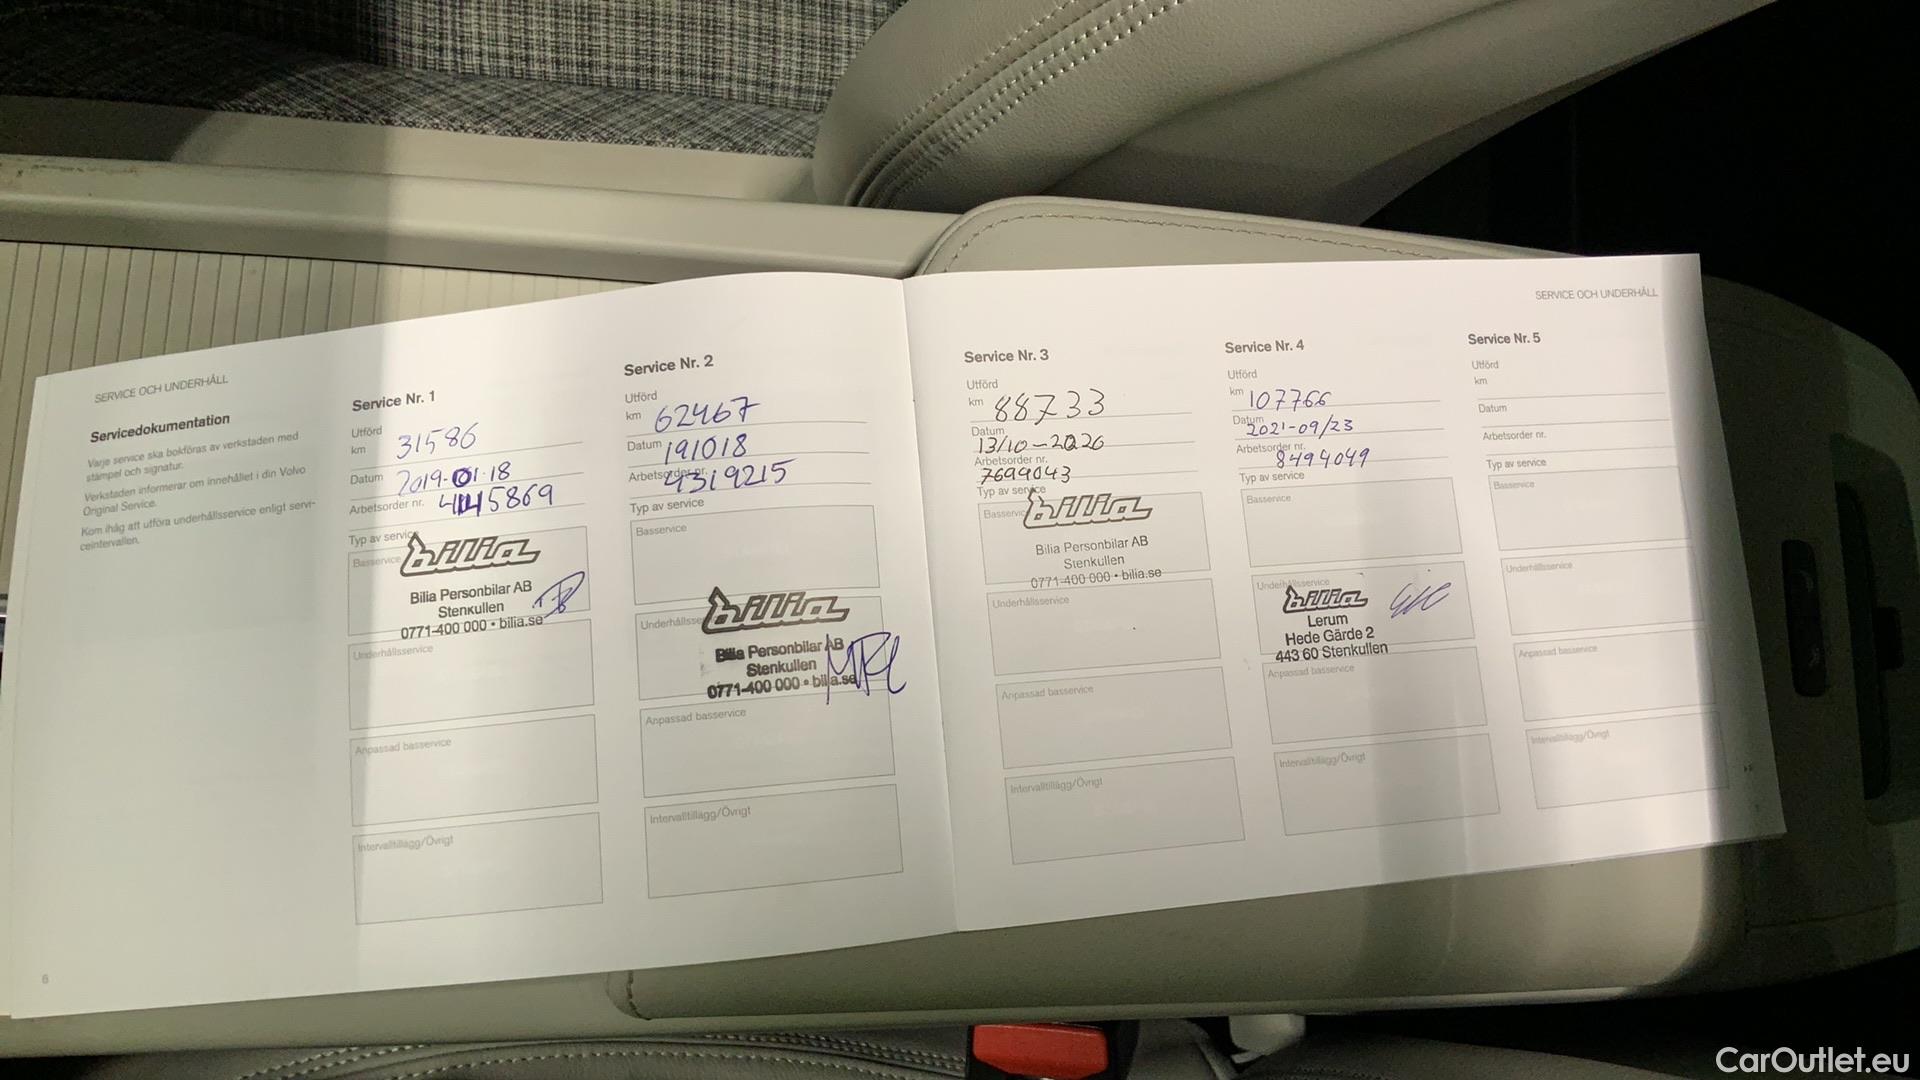 SERVICE OCH UNDERHÅLL
Servicedokumentation
Varje service ska bokföras av verkstaden med
stämpel och signatur.
Verkstaden informerar om innehållet i din Volvo
Original Service.
Kom ihåg att utföra underhållsservice enligt servi-
ceintervallen.
6
Service Nr. 1
Utförd
km 31586
Datum 2019-01-18
Arbetsorder nr. 4145869
Typ av service
Basservice
bilia
Bilia Personbilar AB
Stenkullen
0771-400 000 • bilia.se
Underhållsservice
Anpassad basservice
Intervalltillägg/Övrigt
Service Nr. 2
Utförd
km 62467
Datum 191018
Arbetsorder nr. 4319215
Typ av service
Basservice
Underhållsse
bilia
Bilia Personbilar AB
Stenkullen
0771-400 000 • bilia.se
Anpassad basservice
Intervalltillägg/Övrigt
SERVICE OCH UNDERHÅLL
Service Nr. 3
Utförd
km 88733
Datum
13/10-2020
Arbetsorder nr.
7694043
Typ av service
Basservice
bilia
Bilia Personbilar AB
Stenkullen
0771-400 000 • bilia.se
Underhållsservice
Anpassad basservice
Intervalltillägg/Övrigt
Service Nr. 4
Utförd
km 107766
Datum
2021-09/23
Arbetsorder nr.
8494049
Typ av service
Basservice
Underhållsservice
bilia
Lerum
Hede Gärde 2
443 60 Stenkullen
Anpassad basservice
Intervalltillägg/Övrigt
Service Nr. 5
Utförd
km
Datum
Arbetsorder nr.
Typ av service
Basservice
Underhållsservice
Anpassad basservice
Intervalltillägg/Övrigt
CarOutlet.eu